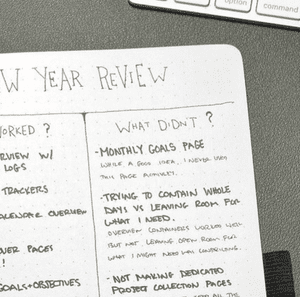 option
command
W YEAR REVIEW
WORKED?
RVIEW W/
LOGS
TRACKERS
OVERVIEW
OVER PAGES
!
GOALS + OBJECTIVES
WHAT DIDN'T?
- MONTHLY GOALS PAGE
WHILE A GOOD IDEA, I NEVER USED
THIS PAGE ACTIVELY.
- TRYING TO CONTAIN WHOLE
DAYS VS LEAVING ROOM FOR
WHAT I NEED.
OVERVIEW CONTAINERS WORKED WELL
BUT NOT LEAVING OPEN ROOM FOR
WHAT I MIGHT NEED WAS
- NOT MAKING DEDICATED
PROJECT COLLECTION PAGES
ALL THE